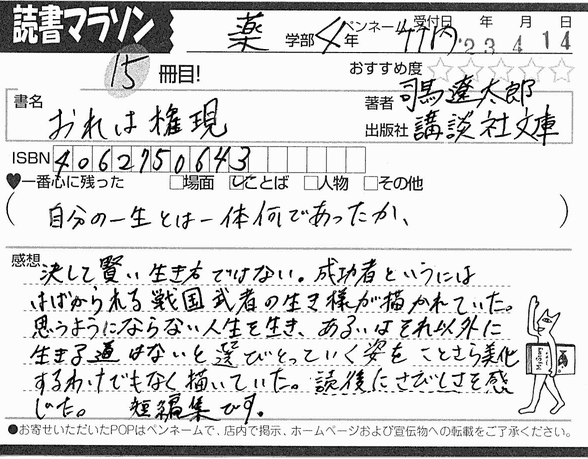 読書マラソン
薬 学部 4 年 ペンネーム 竹内 受付日 '23 年 4 月 14 日
15 冊目! おすすめ度☆☆☆☆☆
書名 おれは権現
著者 司馬遼太郎
出版社 講談社文庫
ISBN 4062750643
♥一番心に残った □場面 ☑ことば □人物 □その他
(自分の一生とは一体何であったか、)
感想
決して賢い生き方ではない。成功者というには
はばかられる戦国武者の生き様が描かれていた。
思うようにならない人生を生き、あるいはそれ以外に
生きる道はないと選びとっていく姿をことさら美化
するわけでもなく描いていた。読後にさびしさを感
じた。 短編集です。
●お寄せいただいたPOPはペンネームで、店内で掲示、ホームページおよび宣伝物への転載をご了承ください。